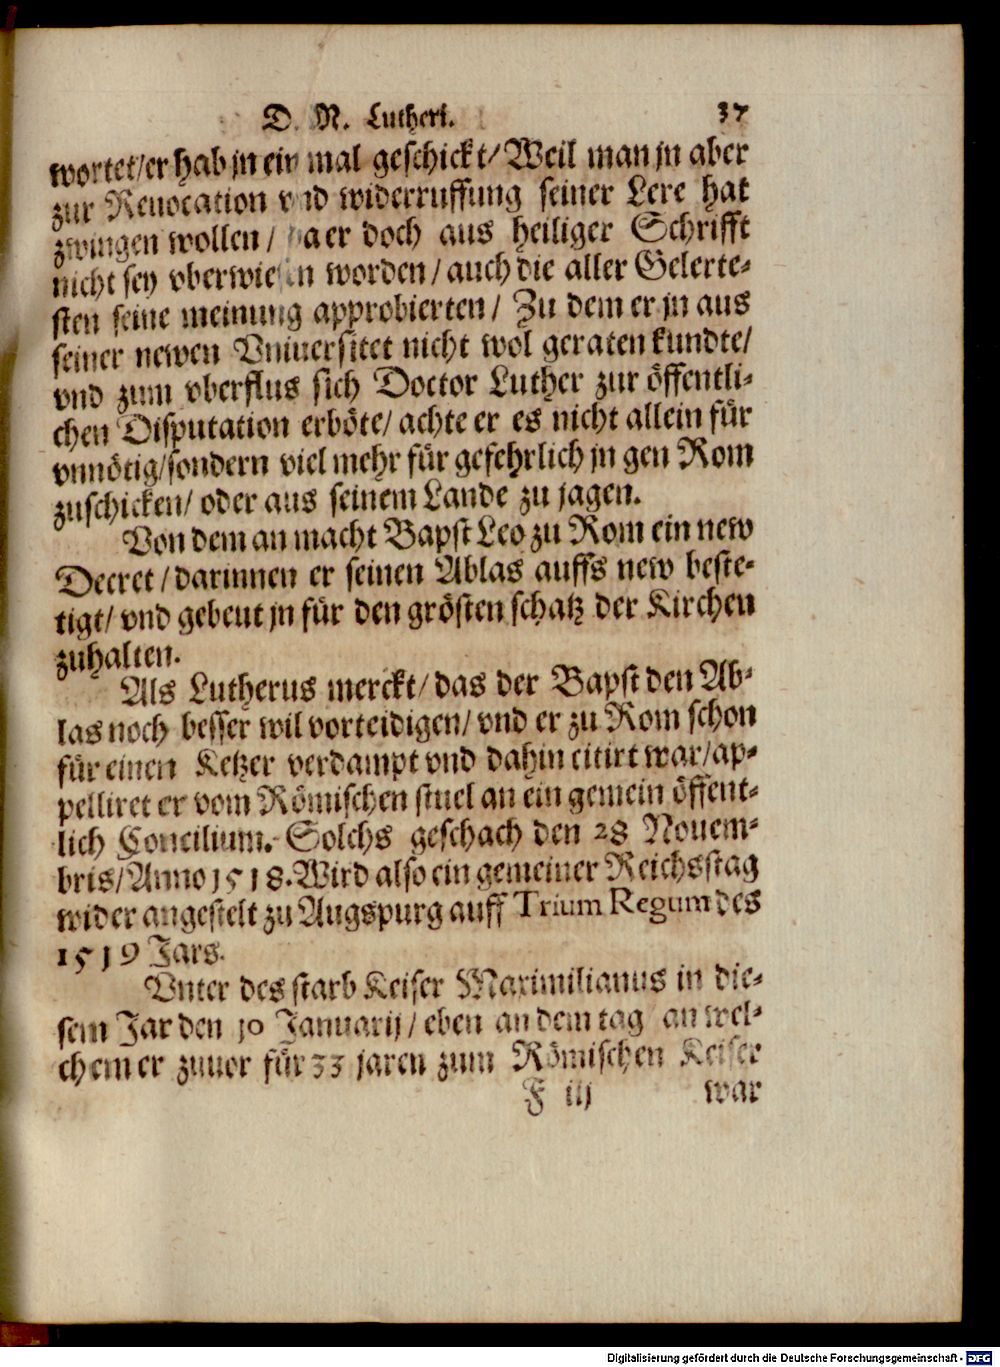 D. M. Lutheri. 37
wortet/er hab jn ein mal geschickt/Weil man jn aber
zur Reuocation vnd widerruffung seiner Lere hat
zwingen wollen/ da er doch aus heiliger Schrifft
nicht sey vberwiesen worden/auch die aller Gelerte⸗
sten seine meinung approbierten/ Zu dem er jn aus
seiner newen Vniuersitet nicht wol geraten kundte/
vnd zum vberflus sich Doctor Luther zur öffentli⸗
chen Disputation erböte/achte er es nicht allein für
vnnötig/sondern viel mehr für gefehrlich jn gen Rom
zuschicken/ oder aus seinem Lande zu jagen.
Von dem an macht Bapst Leo zu Rom ein new
Decret/darinnen er seinen Ablas auffs new beste⸗
tigt/ vnd gebeut jn für den grösten schatz der Kirchen
zuhalten.
Als Lutherus merckt/das der Bapst den Ab⸗
las noch besser wil vorteidigen/vnd er zu Rom schon
für einen Ketzer verdampt vnd dahin citirt war/ap⸗
pelliret er vom Römischen stuel an ein gemein öffent⸗
lich Concilium. Solchs geschach den 28 Nouem⸗
bris/Anno 1518. Wird also ein gemeiner Reichsstag
wider angestelt zu Augspurg auff Trium Regum des
1519 Jars.
Vnter des starb Keiser Maximilianus in die⸗
sem Jar den 10 Januarij/eben an dem tag an wel⸗
chem er zuuor für 33 jaren zum Römischen Keiser
F iij war
Digitalisierung gefördert durch die Deutsche Forschungsgemeinschaft - DFG